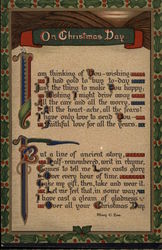 On Christmas Day
I am thinking of You - wishing
I had gold to buy to-day
Just the thing to make You happy,
Wishing I might drive away
All the care and all the worry,
All the heart-ache, all the fears!
I have only love to send You
Faithful love for all the years.
But a line of ancient story,
Half-remembered, word in rhyme,
Comes to tell me Love casts glory
Over every hour of time,
Take my gift, then, take and wear it.
Let me feel that, in some way,
I have cast a gleam of gladness
Over all your Christmas Day.
Mary C.